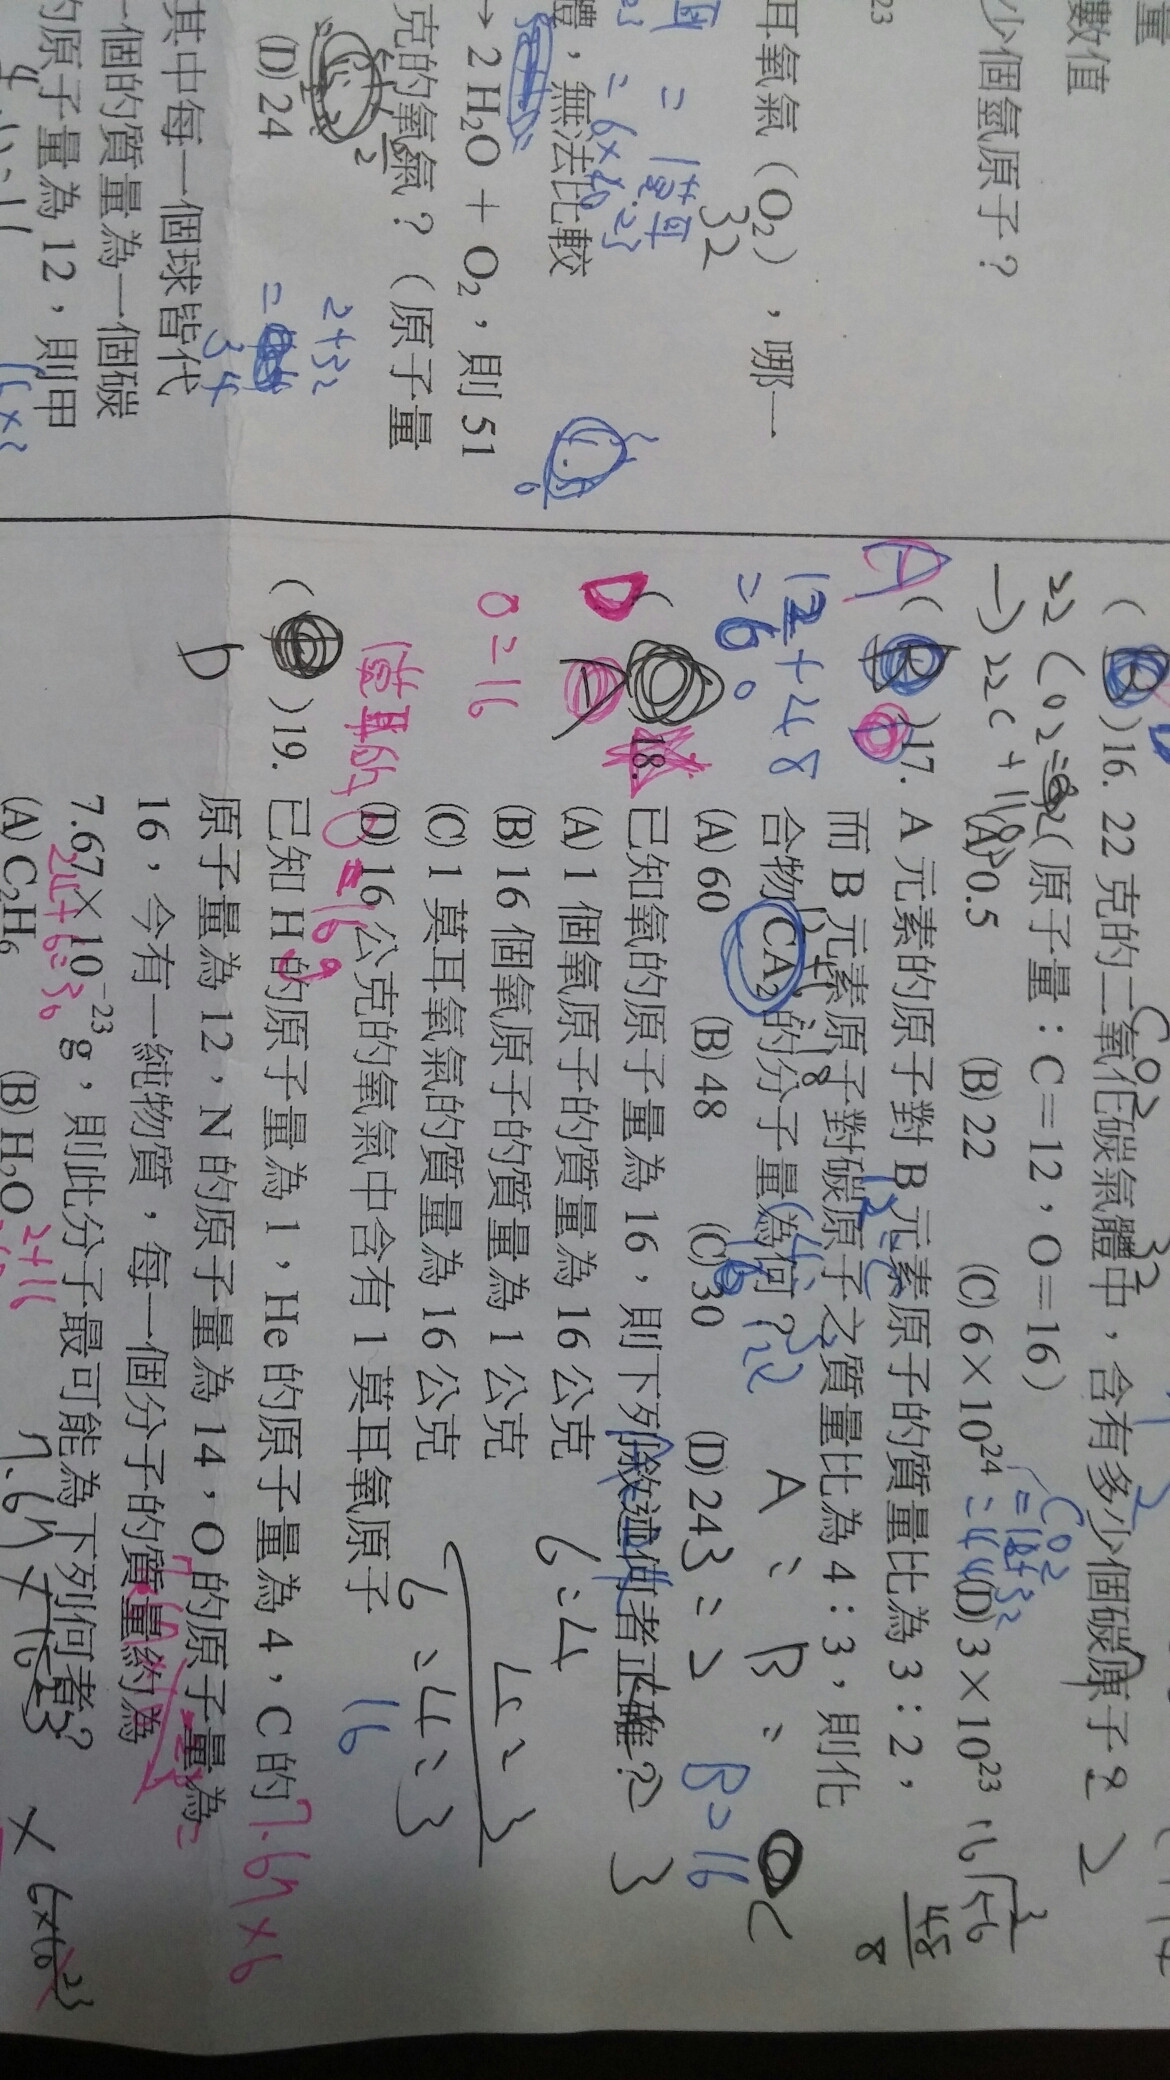 量
數值
少個氫原子？
23
耳氧氣（O₂），哪一
32
體，無法比較
→ 2 H₂O + O₂，則 51
克的氧氣？（原子量
(D) 24
2+32
=
34
其中每一個球皆代
一個的質量為一個碳
的原子量為 12，則甲
( )16. 22 克的二氧化碳氣體中，含有多少個碳原子？
（原子量：C＝12，O＝16）
(A) 0.5 (B) 22 (C) 6×10²⁴ (D) 3×10²³
CO₂
32
A
( B )17. A 元素的原子對 B 元素原子的質量比為 3：2，
而 B 元素原子對碳原子之質量比為 4：3，則化
合物 CA₂ 的分子量為何？
(A) 60 (B) 48 (C) 30 (D) 24
12+48
=60
A : B : C
3 : 2
4 : 3
6 : 4
6 : 4 : 3
B=16
16
D
( )18. 已知氧的原子量為 16，則下列敘述何者正確？
(A) 1 個氧原子的質量為 16 公克
(B) 16 個氧原子的質量為 1 公克
(C) 1 莫耳氧氣的質量為 16 公克
(D) 16 公克的氧氣中含有 1 莫耳氧原子
O=16
1莫耳的O=16g
( )19. 已知 H 的原子量為 1，He 的原子量為 4，C 的
原子量為 12，N 的原子量為 14，O 的原子量為
16，今有一純物質，每一個分子的質量約為
7.67×10⁻²³g，則此分子最可能為下列何者？
(A) C₂H₆ (B) H₂O
D
24+6=30
2+16
7.67×6
7.67×10⁻²³
×6×10²³